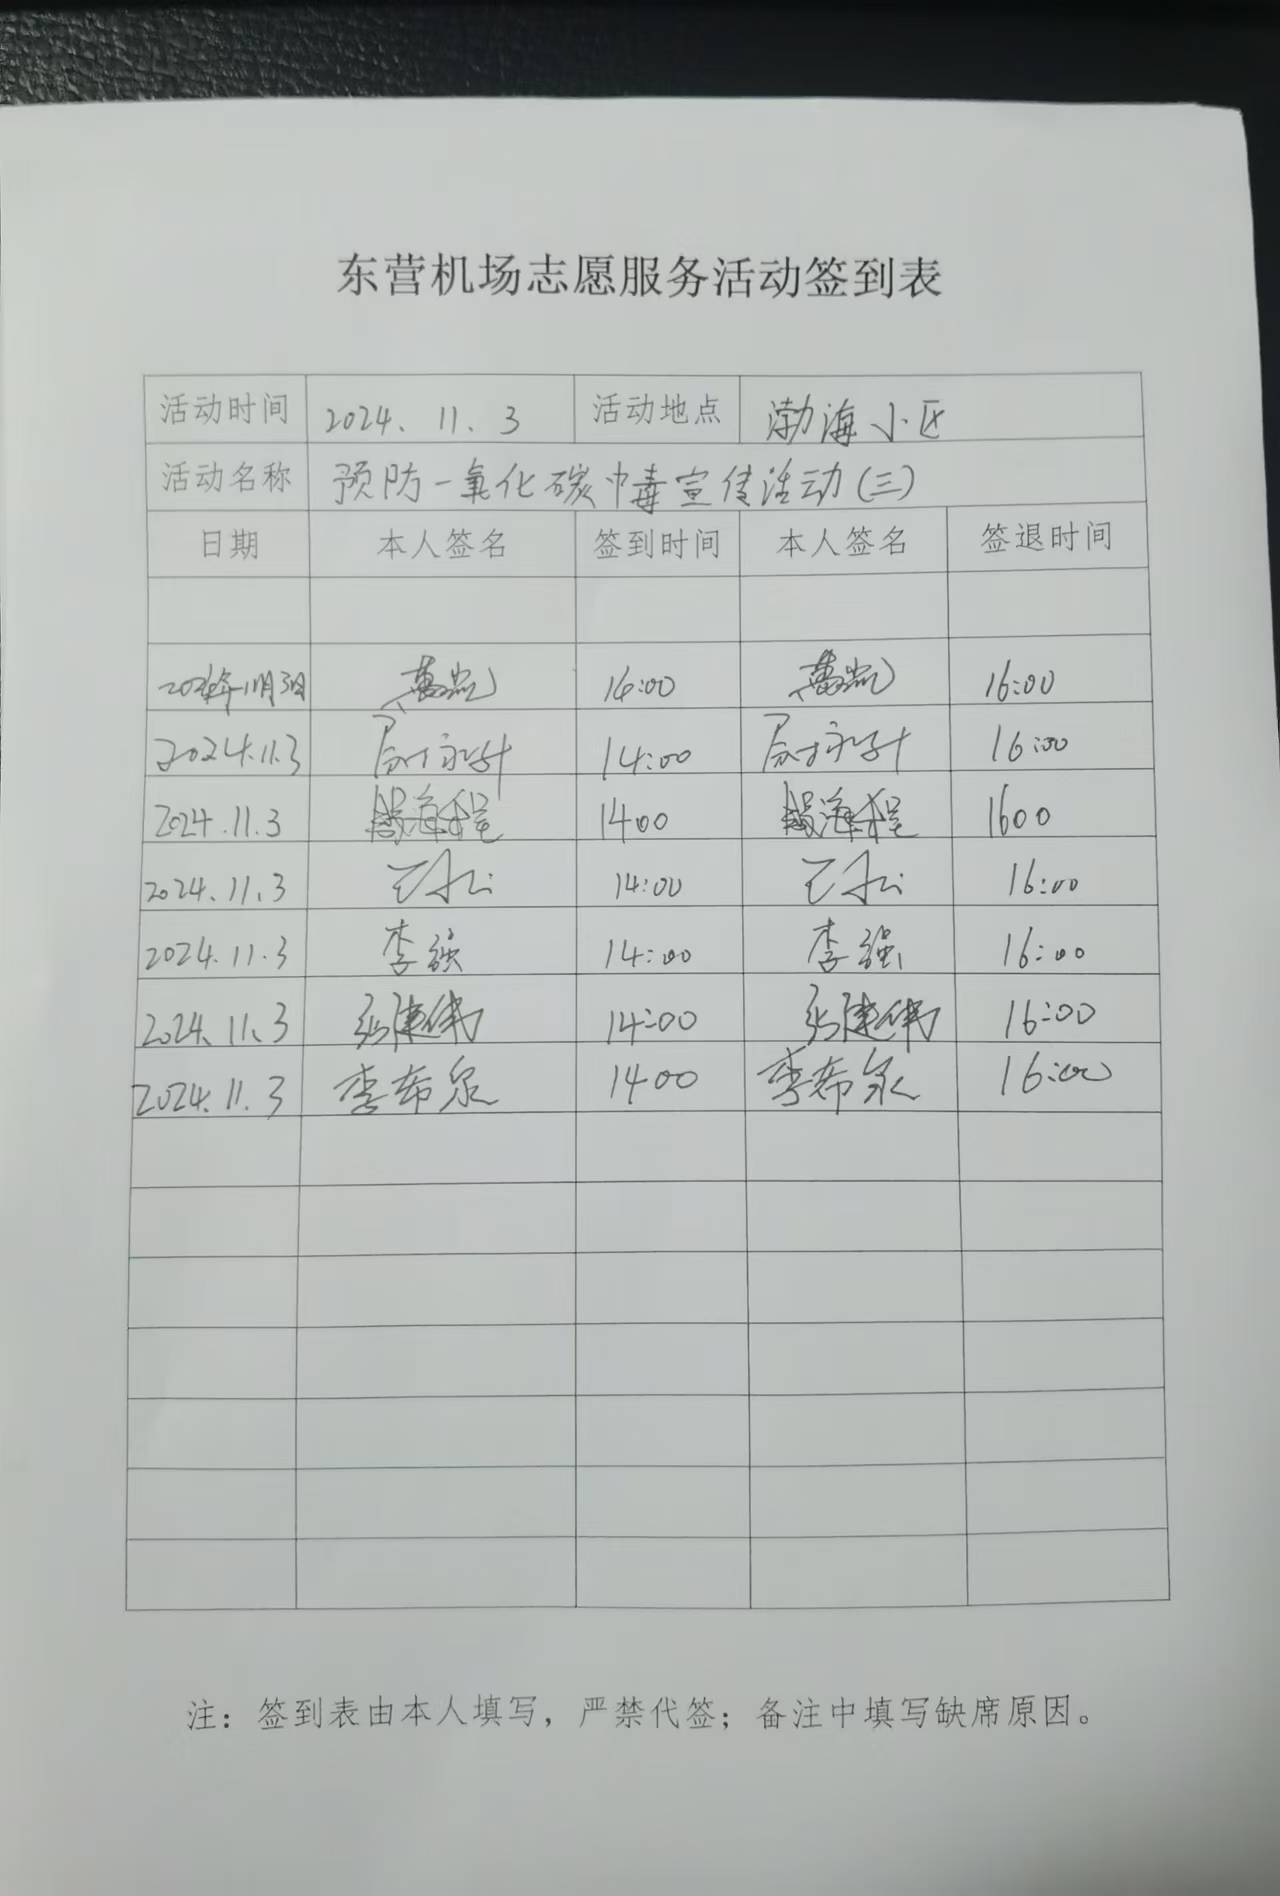 东营机场志愿服务活动签到表
活动时间 2024. 11. 3 活动地点 渤海小区
活动名称 预防一氧化碳中毒宣传活动(三)
日期 本人签名 签到时间 本人签名 签退时间
2024年11月3日 16:00
2024.11.3 14:00 16:00
2024.11.3 1400 1600
2024.11.3 14:00 16:00
2024.11.3 李强 14:00 李强 16:00
2024.11.3 张建伟 14:00 张建伟 16:00
2024.11.3 李希泉 1400 李希泉 16:00
注：签到表由本人填写，严禁代签；备注中填写缺席原因。